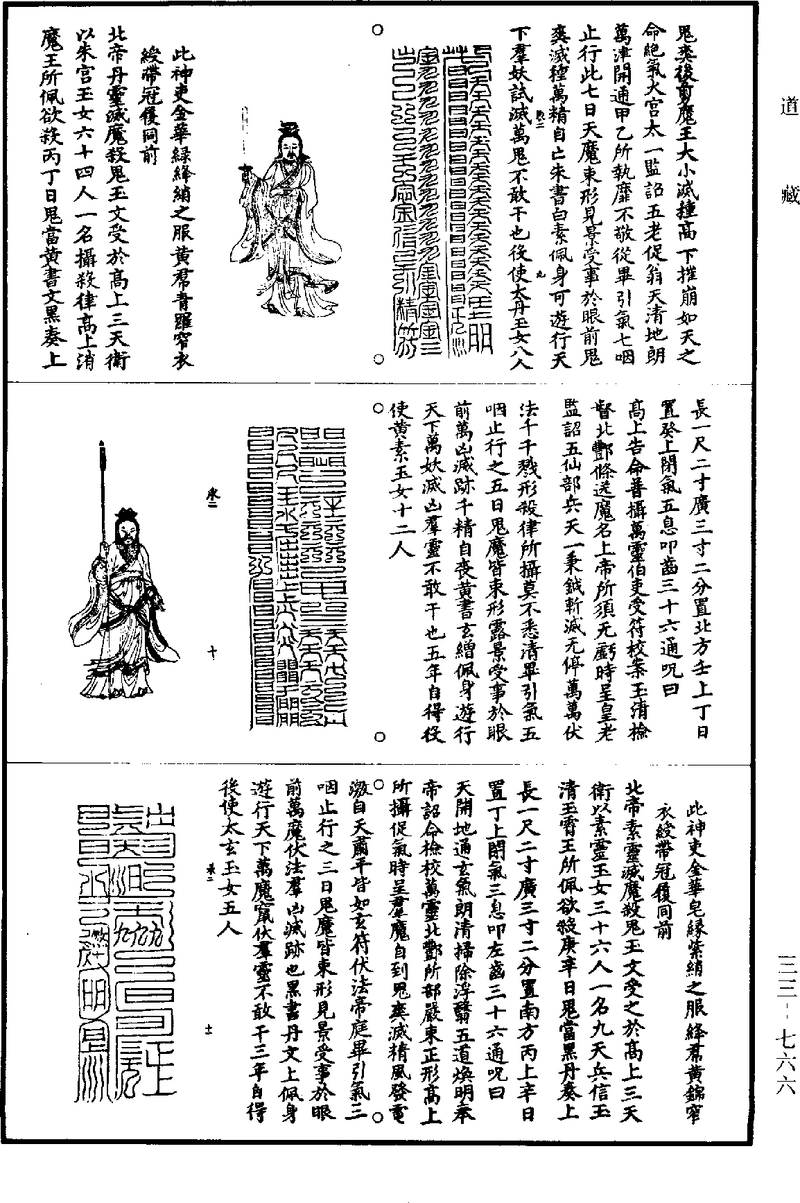 道藏
鬼爽後剪魔王大小滅種高下摧崩如天之
命絕氣火宮太一監詔五老促翕天清地朗
萬津開通甲乙所執靡不敬從畢引氣七咽
止行此七日天魔束形見景受事於眼前鬼
爽滅種萬精自亡朱書白素佩身可遊行天
下羣妖試滅萬鬼不敢干也後使太丹玉女八人
卷二
九
此神吏金華綠絳綃之服黃帬青羅窄衣
綬帶冠履同前
北帝丹靈滅魔殺鬼玉文受於高上三天衛
以朱宮玉女六十四人一名攝殺律高上消
魔王所佩欲殺丙丁日鬼當黃書文黑奏上
長一尺二寸廣三寸二分置北方壬上丁日
置癸上閉氣五息叩齒三十六通呪曰
高上告命普攝萬靈伯吏受符校案玉清檢
督北酆條送魔名上帝所須无虧時呈皇老
監詔五仙部兵天一秉鉞斬滅无停萬萬伏
法千千戮形殺律所攝莫不悉清畢引氣五
咽止行之五日鬼魔皆束形露景受事於眼
前萬凶滅跡千精自喪黃書玄繒佩身遊行
天下萬妖滅凶羣靈不敢干也五年自得役
使黃素玉女十二人
卷二
十
此神吏金華皂緣紫綃之服絳帬黃錦窄
衣綬帶冠履同前
北帝素靈滅魔殺鬼玉文受之於高上三天
衛以素靈玉女三十六人一名九天兵信玉
清玉霄王所佩欲殺庚辛日鬼當黑丹奏上
長一尺二寸廣三寸二分置南方丙上辛日
置丁上閉氣三息叩左齒三十六通呪曰
天開地通玄氣朗清掃除浮翳五道煥明奉
帝詔命檢校萬靈北酆所部嚴束正形高上
所攝促氣時呈羣魔自到鬼爽滅精風發電
激自天肅平皆如玄符伏法帝庭畢引氣三
咽止行之三日鬼魔皆束形見景受事於眼
前萬魔伏法羣凶滅跡也黑書丹文上佩身
遊行天下萬魔竄伏羣靈不敢干三年自得
後使太玄玉女五人
卷二
十一
三三－七六六